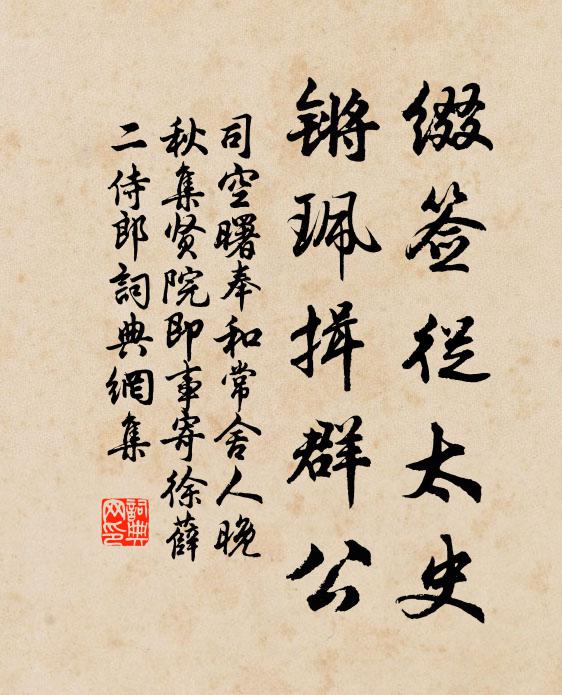 缀签従太史
锵珮揖群公
司空曙奉和常舍人晚
秋集贤院即事寄徐薛
二侍郎詞典網集
詞典
网印